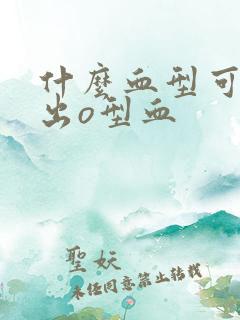 什麼血型可
出o型血
聖妖
未經同意禁止轉載